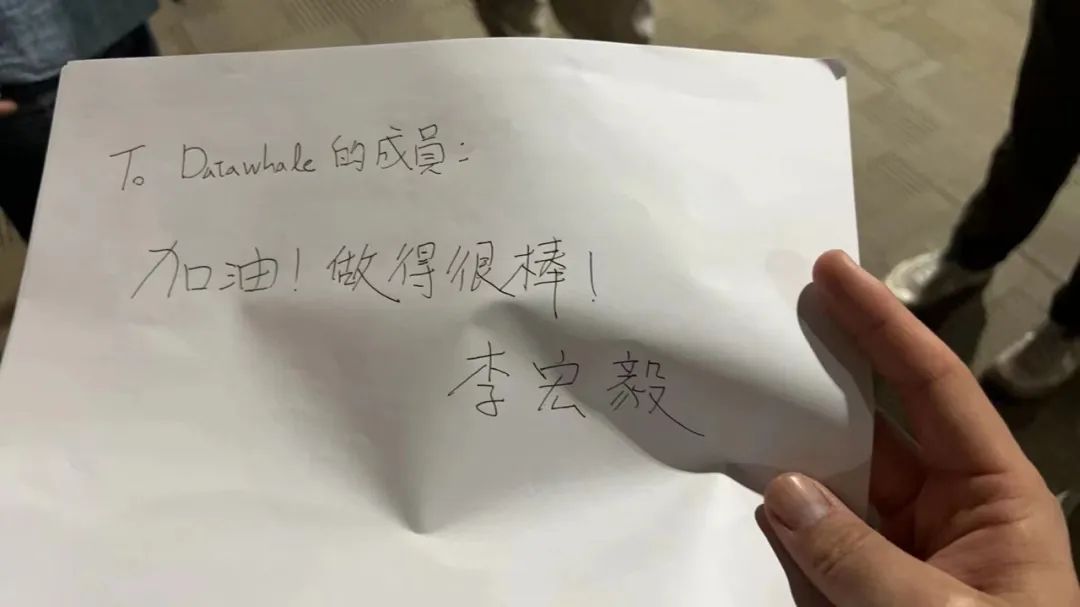 To Datawhale 的成員:
加油! 做得很棒!
李宏毅